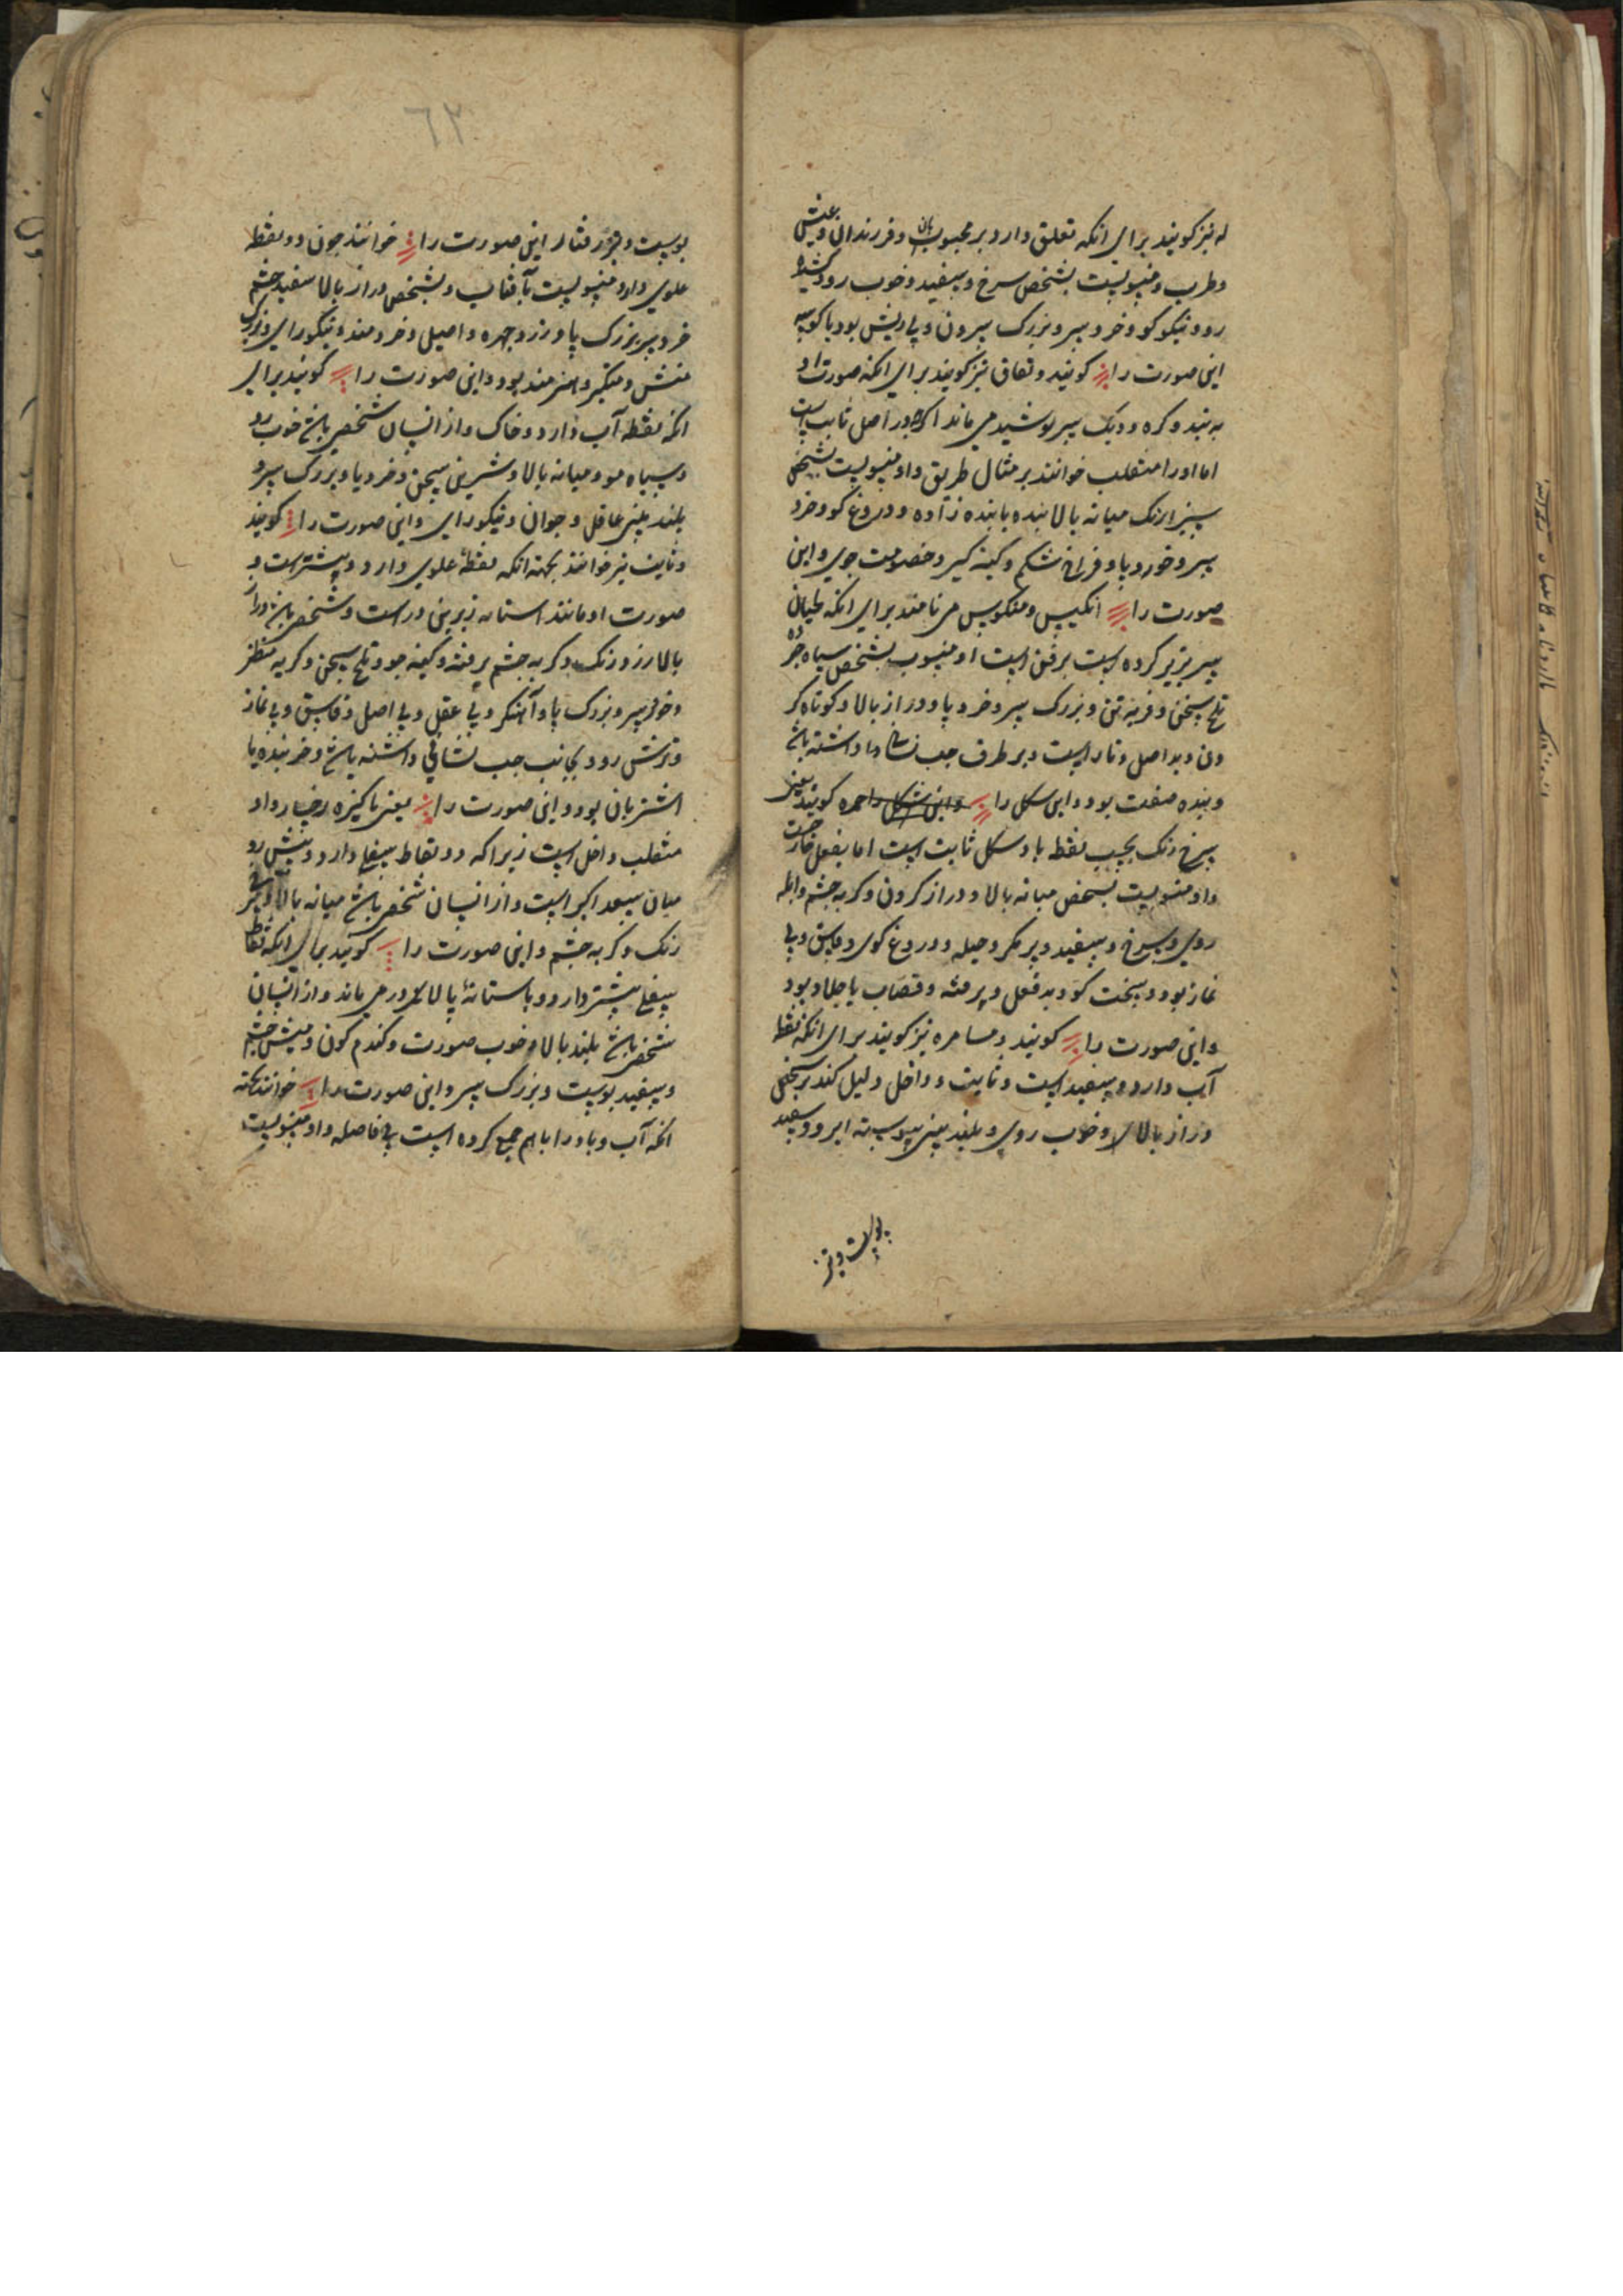 له نیز کویند برای انکه تعلق دارد بر محبوبان و فرزندان و عیش
و طرب و منسوبست بشخص سرخ و سفید و خوب رو و کشیده
رو و نیکو کو و خرد سر و بزرک سرون و بی ریش بود یا کوسه
این صورت را کویند و نقاق نیز کویند برای انکه صورت او
به بند و کره و دیک سر پوشید می ماند اکرچه در اصل ثابت است
اما او را منقلب خوانند بر مثال طریق و او منسوبست بشخص
سبزارنک میانه بالا بنده یا بنده زاده و دروغ کو و خرد
سر و خورد پا و فراخ شکم و کینه کیر و خصومت جوی و این
صورت را انکیس و منکوس می نامند برای انکه لحیان
سر بزیر کرده است برفتن است او منسوب بشخص سیاه چرده
تلخ سخن و فربه تن و بزرک سر و خرد پا و دراز بالا و کوتاه کر
دن و بد اصل و ناراست و بر طرف چپ نشان داد داشته باشد
و بنده صفت بود و این سکل را واین شکل را حمره کویند یعنی
سرخ رنک بحسب نقطه باد و شکل ثابت است اما بفعل خارجست
و او منسوبست بشخص میانه بالا و دراز کردن و کربه چشم و ابله
روی و سرخ و سفید و پر مکر و حیله و دروغ کوی و فاسق و بی
نماز بود و سخت کو و بد فعل و پر فتنه و قصاب یا جلاد بود
و این صورت را کویند و مسامره نیز کویند برای انکه نقطه
آب دارد و سفید است و ثابت و داخل دلیل کند بر شخص
دراز بالای و خوب روی و بلند بینی پیوسته ابرو و سفید
پوست و تیز
۶۲
پوست و تیز رفتار این صورت را خوانند چون دو نقطه
علوی دارد منسوبست بآفتاب و بشخص دراز بالا سفید چشم
خرد سر بزرک پا و زرد چهره و اصیل و خردمند و نیکو رای و بزرک
منش و متکبر و هنرمند بود و این صورت را کویند برای
انکه نقطه آب دارد و خاک و از انسان شخصی باشد خوب رو
و سیاه مو و میانه بالا و شیرین سخن و خرد پا و بزرک سر و
بلند بینی عاقل و جوان و نیکو رای و این صورت را کویند
و ثابت نیز خوانند بجهته انکه نقطهٔ علوی دارد و بیشترست و
صورت او مانند استانه زیرین دراست و شخصی باشد دراز
بالا زرد رنک و کربه چشم پر فتنه و کینه جو و تلخ سخن و کریه منظر
و خرد سر و بزرک پا و آهنکر و بی عقل و بی اصل و فاسق و بی نماز
و ترش رو و بجانب چپ نشانی داشته باشد و خر بنده یا
اشتربان بود و این صورت را یعنی پاکیزه رخسار و او
منقلب داخل است زیرا که دو نقاط سفلی دارد و پیش رو
میان سعد اکبر است و از انسان شخصی باشد میانه بالا و سرخ
رنک و کربه چشم و این صورت را کویند برای انکه نقاط
سفلی بیشتر دارد و باستانهٔ بالای در می ماند و از انسان
شخصی باشد بلند بالا و خوب صورت و کندم کون و میش چشم
و سفید پوست و بزرک سر و این صورت را خوانند بجهته
انکه آب و باد را باهم جمع کرده است بی فاصله و او منسوبست